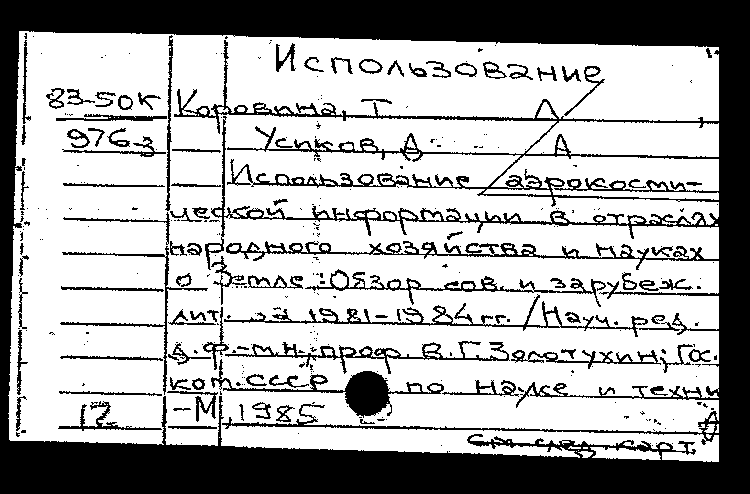 Использование
83-50К Коровина, Т Л
976-3 Усиков, А А
Использование аэрокосми-
ческой информации в отраслях
народного хозяйства и науках
о Земле: Обзор сов. и зарубеж.
лит. за 1981-1984 гг. / Науч. ред.
д.ф.-м.н., проф. В.Г. Золотухин; Гос.
ком. СССР по науке и техни
12 -М, 1985
См. след. карт.